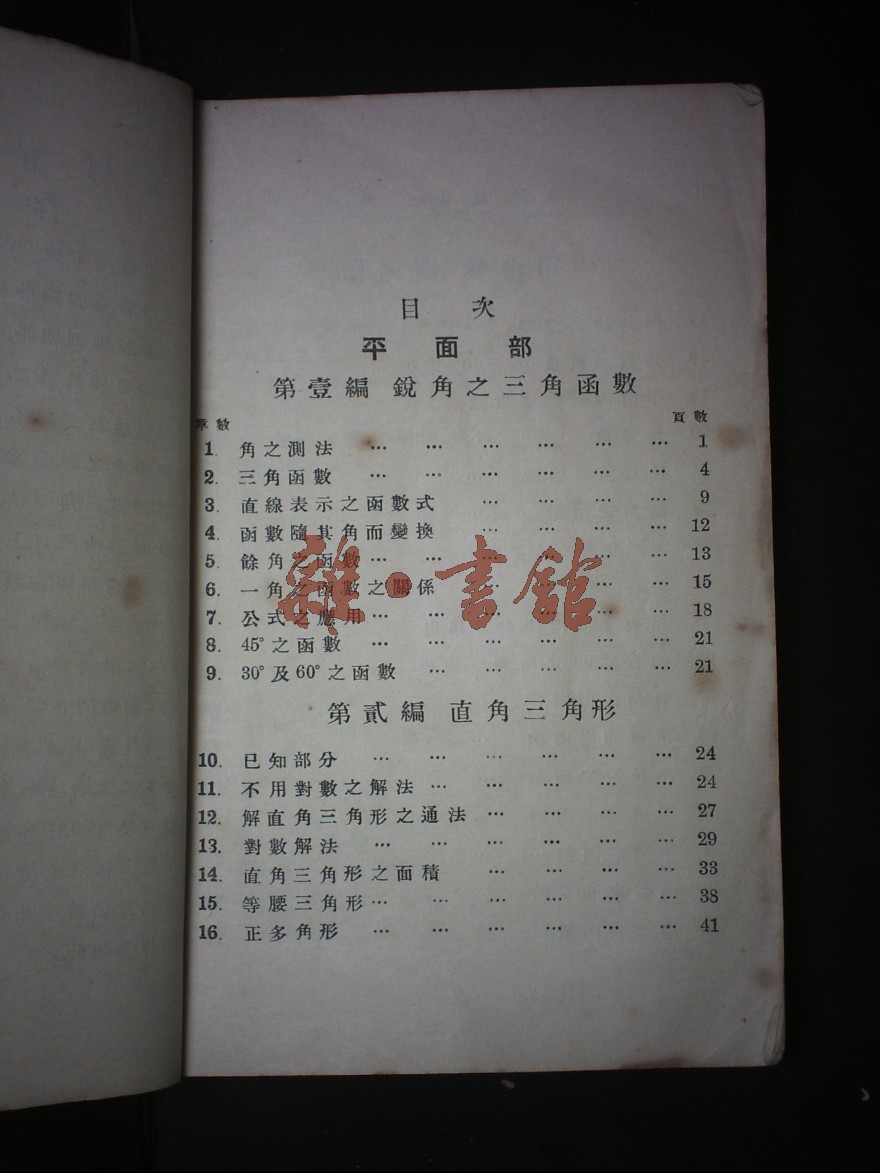 目 次
平 面 部
第壹編 銳角之三角函數
章數 頁數
1. 角之測法 … … … … … … 1
2. 三角函數 … … … … … … 4
3. 直線表示之函數式 … … … … 9
4. 函數隨其角而變換 … … … … 12
5. 餘角之函數 … … … … … … 13
6. 一角之函數之關係 … … … … 15
7. 公式之應用 … … … … … … 18
8. 45°之函數 … … … … … … 21
9. 30°及60°之函數 … … … … … 21
第貳編 直角三角形
10. 已知部分 … … … … … … 24
11. 不用對數之解法 … … … … … 24
12. 解直角三角形之通法 … … … … 27
13. 對數解法 … … … … … … 29
14. 直角三角形之面積 … … … … 33
15. 等腰三角形 … … … … … … 38
16. 正多角形 … … … … … … 41
雜·書館